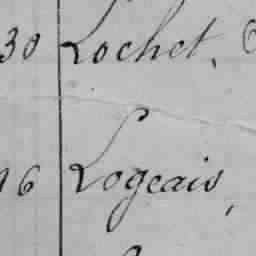 30 Lochet,
16 Logeais,